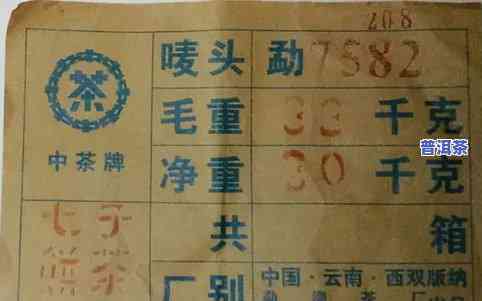 208
茶
中茶牌
唛头 勐7582
毛重 33 千克
净重 30 千克
普洱茶
七子
饼茶
共 箱
厂别
中国·云南·西双版纳
勐海茶厂